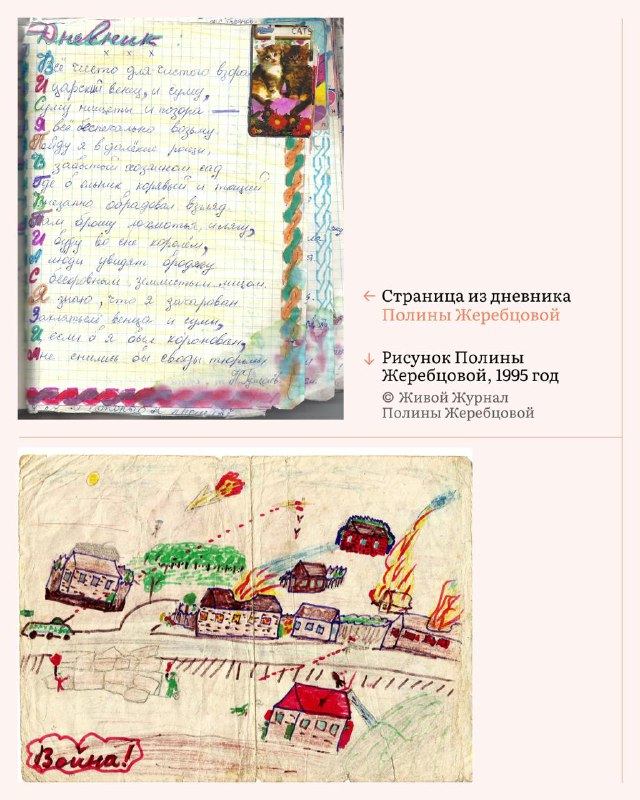 Дневник
CATS
Всё чисто для чистого взора
И царский венец, и суму,
Суму нищеты и позора –
Я всё беспечально возьму.
Пойду я в далёкие рощи,
В забытый хозяином сад
Где б ельник, корявый и тощий
Внезапно обрадовал взгляд.
Там брошу лохмотья, и лягу,
И буду во сне королём,
А люди увидят бродягу
С бескровным землистым лицом.
Я знаю, что я зачарован
Заклятьем венца и сумы,
И если б я был коронован,
Мне снились бы своды тюрьмы
← Страница из дневника
Полины Жеребцовой
↓ Рисунок Полины
Жеребцовой, 1995 год
© Живой Журнал
Полины Жеребцовой
Война!